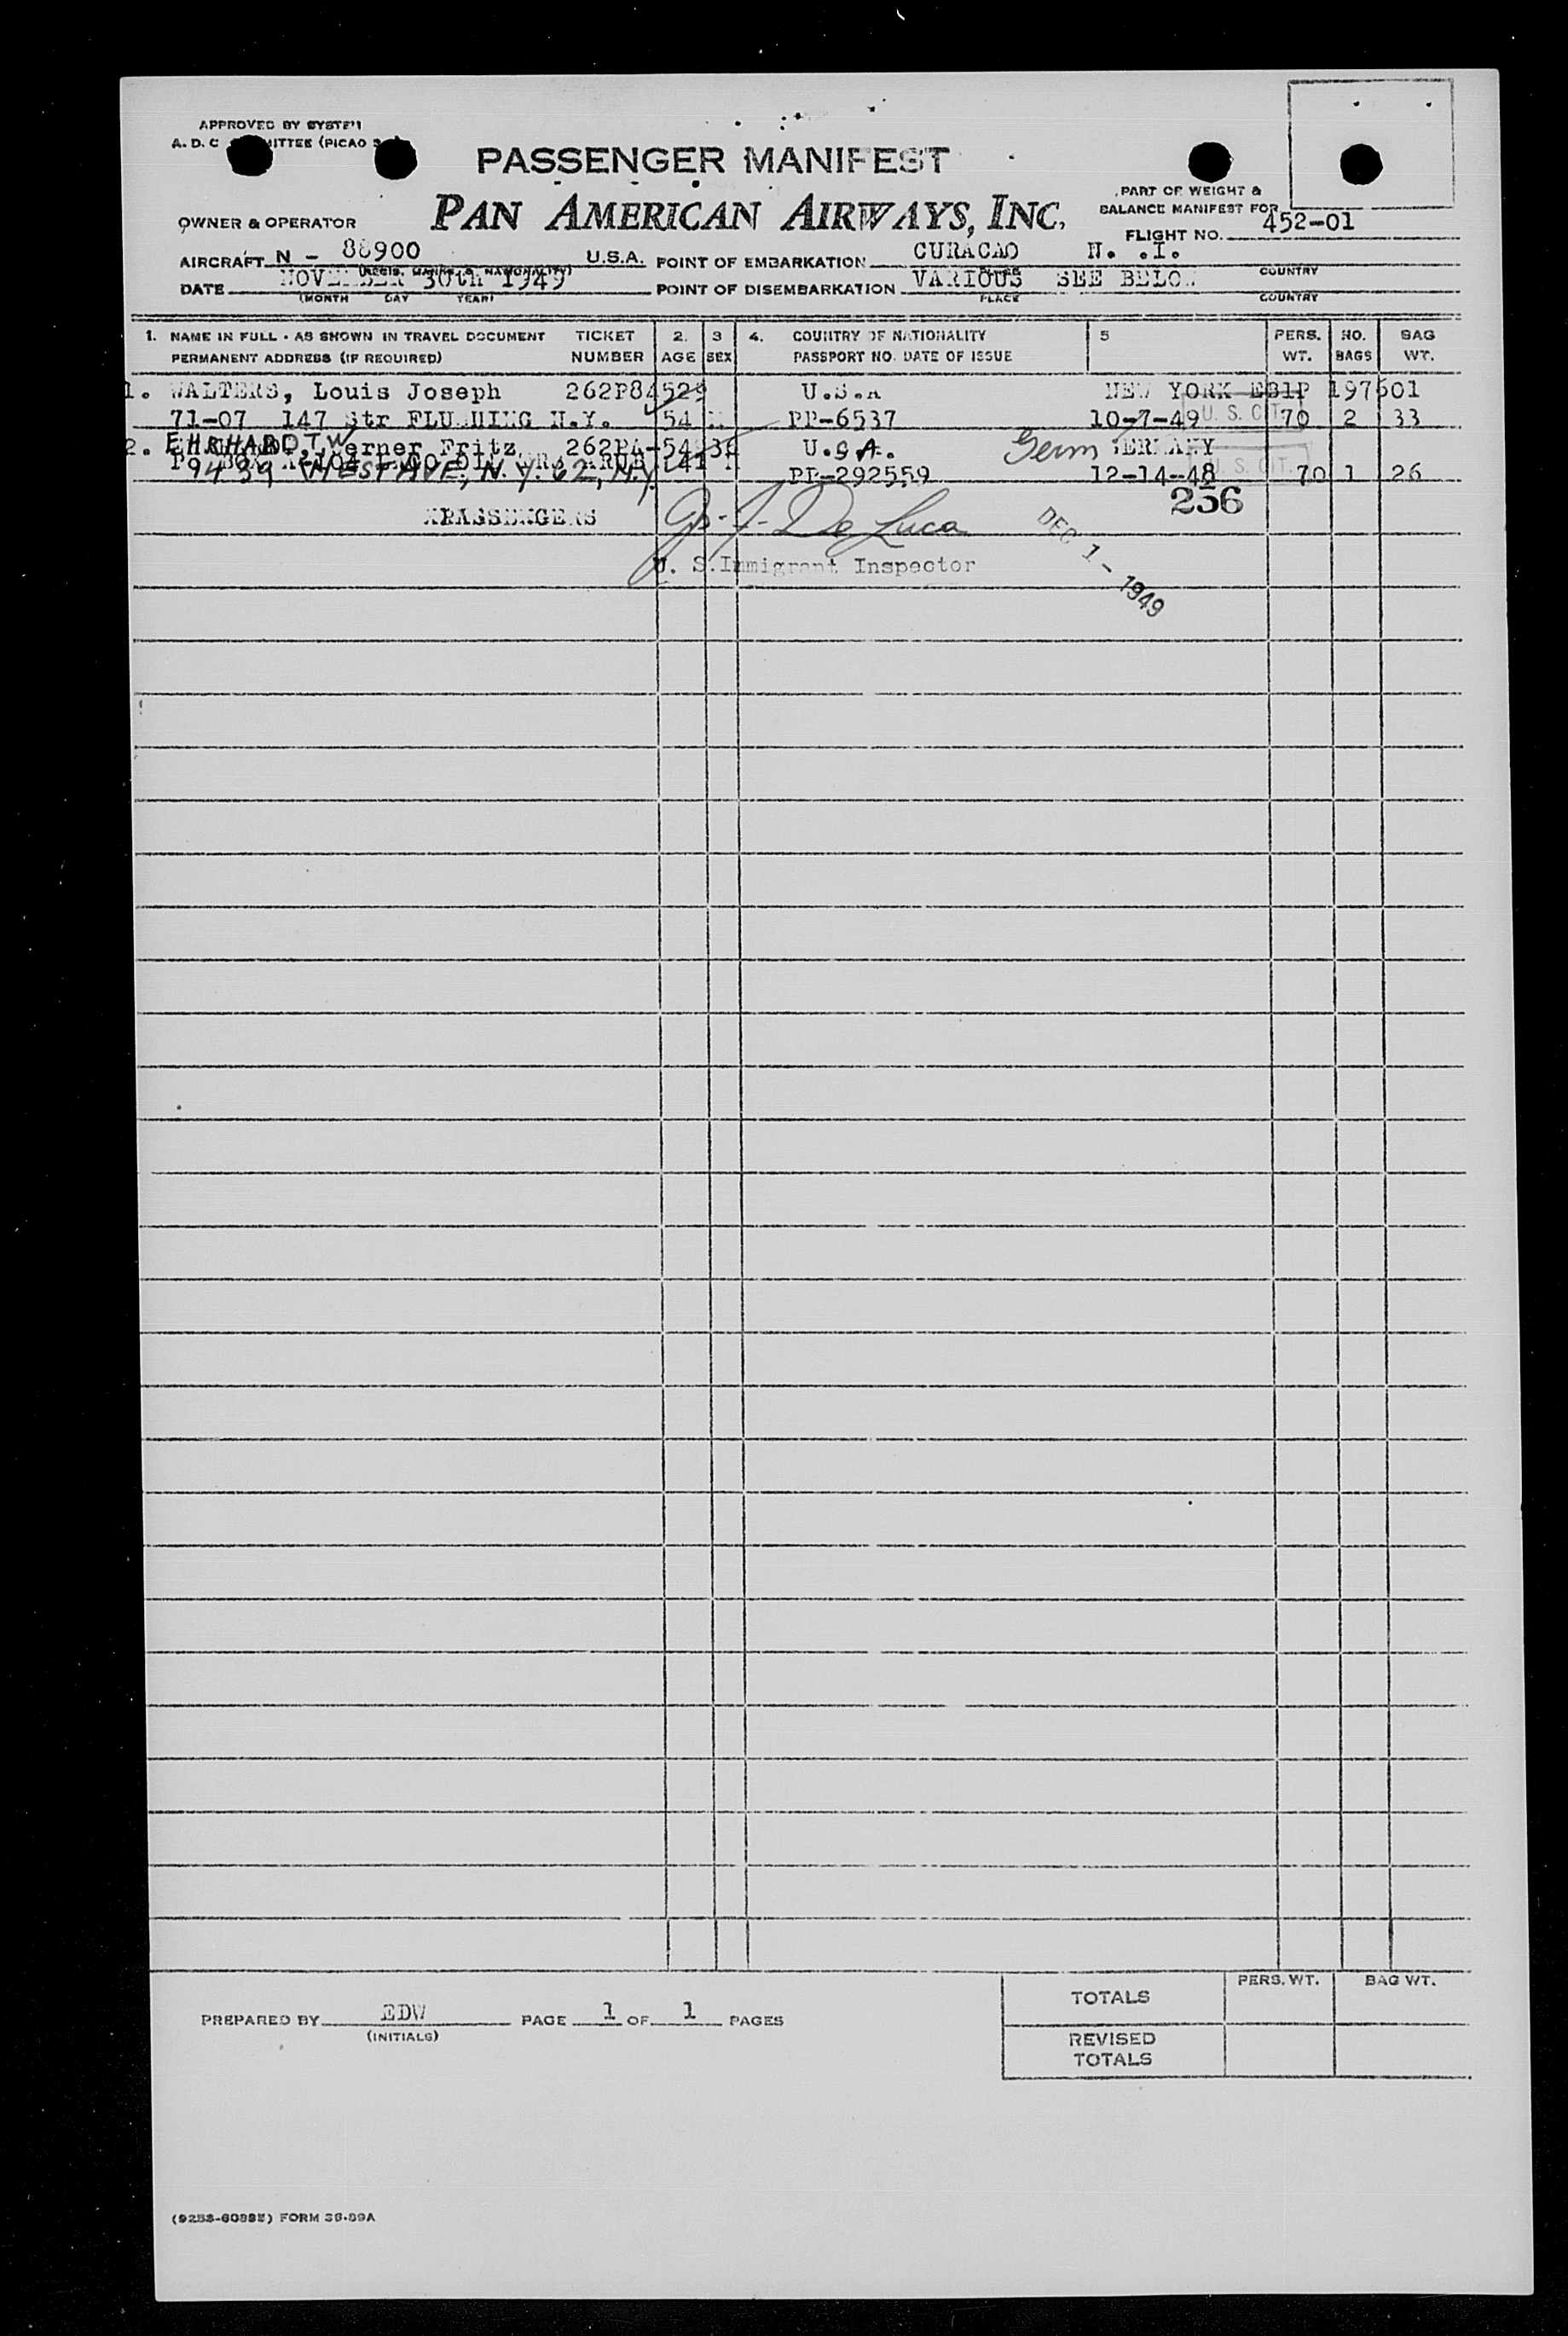 APPROVED BY SYSTEM
A. D. C (PICAO
PASSENGER MANIFEST
PAN AMERICAN AIRWAYS, INC.
PART OF WEIGHT &
BALANCE MANIFEST FOR
FLIGHT NO. 452-01
OWNER & OPERATOR
AIRCRAFT N - 88900 U.S.A. POINT OF EMBARKATION CURACAO N. .I.
(REGIS. MARKS & NATIONALITY) COUNTRY
DATE NOVEMBER 30th 1949 POINT OF DISEMBARKATION VARIOUS SEE BELOW
(MONTH DAY YEAR) PLACE COUNTRY
1. NAME IN FULL - AS SHOWN IN TRAVEL DOCUMENT TICKET 2. 3 4. COUNTRY OF NATIONALITY 5 PERS. NO. BAG
PERMANENT ADDRESS (IF REQUIRED) NUMBER AGE SEX PASSPORT NO. DATE OF ISSUE WT. BAGS WT.
1. WALTERS, Louis Joseph 262P84529 U.S.A NEW YORK E81P 197601
71-07 147 Str FLUSHING N.Y. 54 M PP-6537 10-7-49 U. S. CIT. 70 2 33
2. EHRHARDT, Werner Fritz 262PA-54 U.S.A. Germ GERMANY
9439 WEST AVE, N.Y. 62, N.Y. 41 M PP-292559 12-14-48 U. S. CIT. 70 1 26
256
PASSENGERS Jos. J. De Luca DEC 1 - 1949
U. S. Immigrant Inspector
PREPARED BY EDW PAGE 1 OF 1 PAGES
(INITIALS)
TOTALS PERS. WT. BAG WT.
REVISED
TOTALS
FORM 36-89A